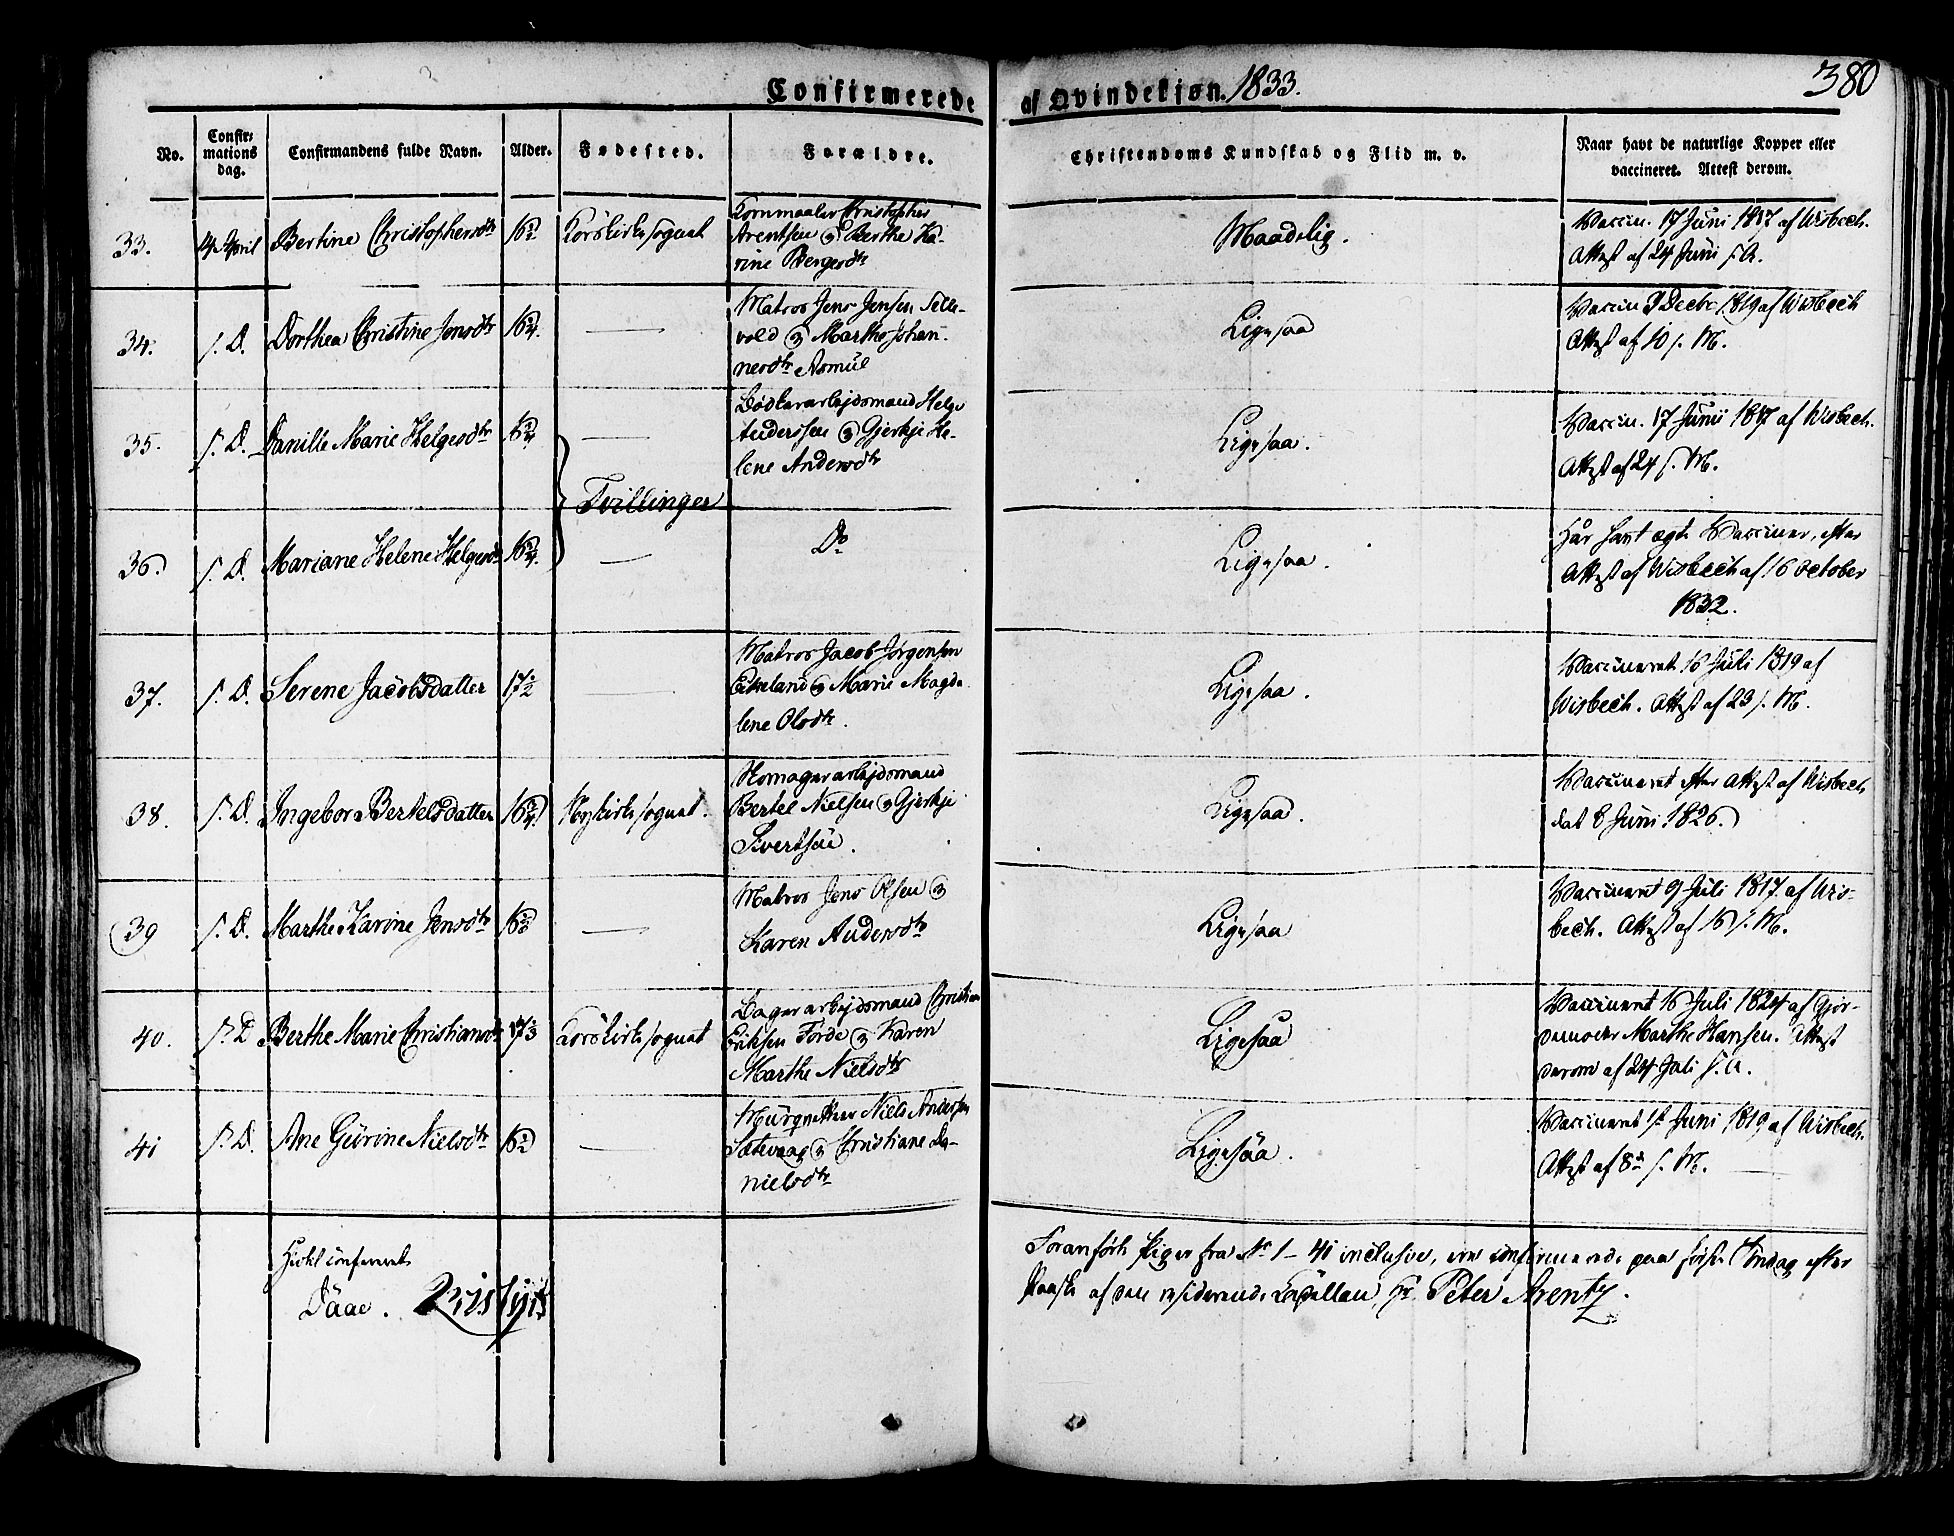 Confirmerede af Qvindekjøn. 1833.
380
No.
Confir-
mations
dag.
Confirmandens fulde Navn.
Alder.
Fødested.
Forældre.
Christendoms Kundskab og Flid m. v.
Naar havt de naturlige Kopper eller
vaccineret. Attest derom.
33.
4 April
Bertine Christophersdtr
16½
Korskirkesognet
Kornmaaler Christopher
Arentsen & Berthe Ka-
rine Bergesdtr
Maadelig.
Vaccin. 17 Juni 1817 af Wisbech.
Attest af 24 Juni s. A.
34.
s. D.
Dorthea Christine Jensdtr
Matros Jens Jensen
vold & Marthe Johan-
nesdtr Asmül
Ligesaa
Vaccin 9 Decbr 1819 af Wisbech
Attest af 10 s. M.
35.
s. D.
Danille Marie Helgesdtr
Bødkerarbejdsmand Helge
Anderssen & Gjertje He-
lene Andersdtr
Ligesaa.
Vaccin. 17 Junii 1817 af Wisbech.
Attest af 24 s. M.
Tvillinger
36.
s. D.
Mariane Helene Helgesdtr
Do
Ligesaa.
Har havt ægte Vacciner, efter
Attest af Wisbech af 16 October
1832.
37.
s. D.
Serene Jacobsdatter
17½
Matros Jacob Jørgensen
Eikeland & Marie Magda
lene Olsdtr.
Ligesaa.
Vaccineret 16 Juli 1819 af
Wisbech. Attest af 23 s. M.
38.
s. D.
Ingebor Bertelsdatter
16¾
Nykirkesognet.
arbejdsmand
Bertel Nielsen & Gjertje
Sivertsen.
Ligesaa.
Vaccineret efter Attest af Wisbech
dat 8 Juni 1826.
39
s. D.
Marthe Karine Jensdtr
Matros Jens Olsen &
Karen Andersdtr
Ligesaa
Vaccineret 9 Juli 1817 af Wis-
bech. Attest af 16 s. M.
40.
s. D
Berthe Marie Christiansdtr
Korskirkesognet
Bagerarbejdsmand Christian
Eriksen Førde & Karen
Marthe Nielsdtr
Ligesaa
Vaccineret 16 Juli 1824 af Gjor-
demoder Marthe Hansen. Attest
derom af 24 Juli s. A.
41
s. D.
Ane Gürine Nielsdtr
16½
Niels Andersen
Sætevaag & Christiane Da-
nielsdtr
Ligesaa.
Vaccineret 1st Juni 1819 af Wisbech.
Attest af 8de s. M.
confereret
Daae.
Foranførte Piger fra No 1 – 41 inclusive, ere confirmerede paa første Tirsdag efter
Paaske af den residerende Capellan, Hr. Peter Arentz.